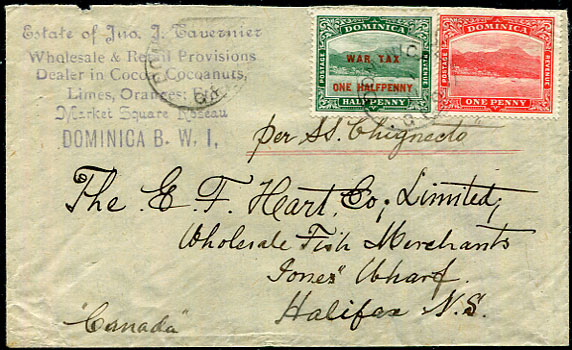 Estate of Jno. J. Tavernier
Wholesale & Retail Provisions
Dealer in Cocoa, Cocoanuts,
Limes, Oranges,
Market Square Roseau
DOMINICA B. W. I,
DOMINICA
POSTAGE
REVENUE
WAR TAX
ONE HALFPENNY
HALFPENNY
DOMINICA
POSTAGE
REVENUE
ONE PENNY
per SS. Chignecto
The E. F. Hart Co; Limited,
Wholesale Fish Merchants
Jones' Wharf
Halifax N.S.
"Canada"